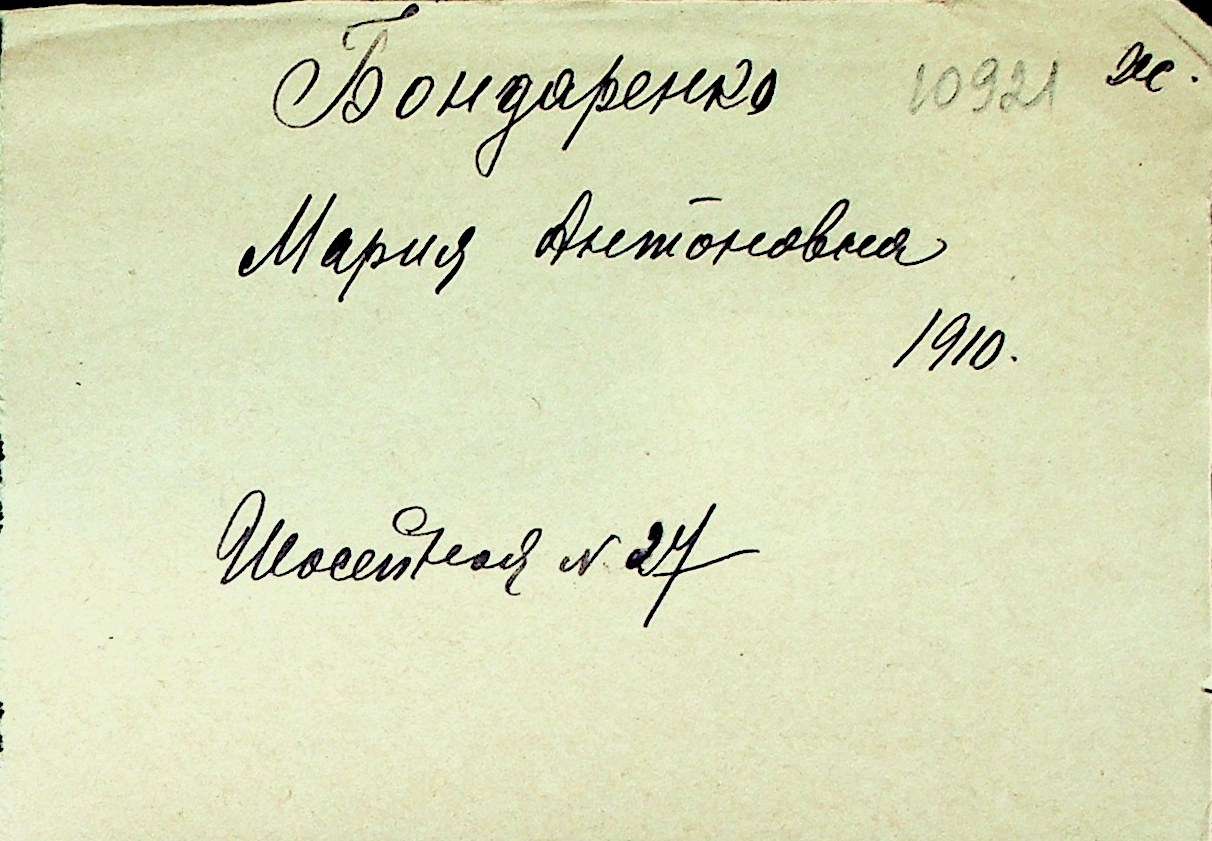 Бондаренко 10921 ж.
Мария Антоновна
1910.
Шосейная N. 27